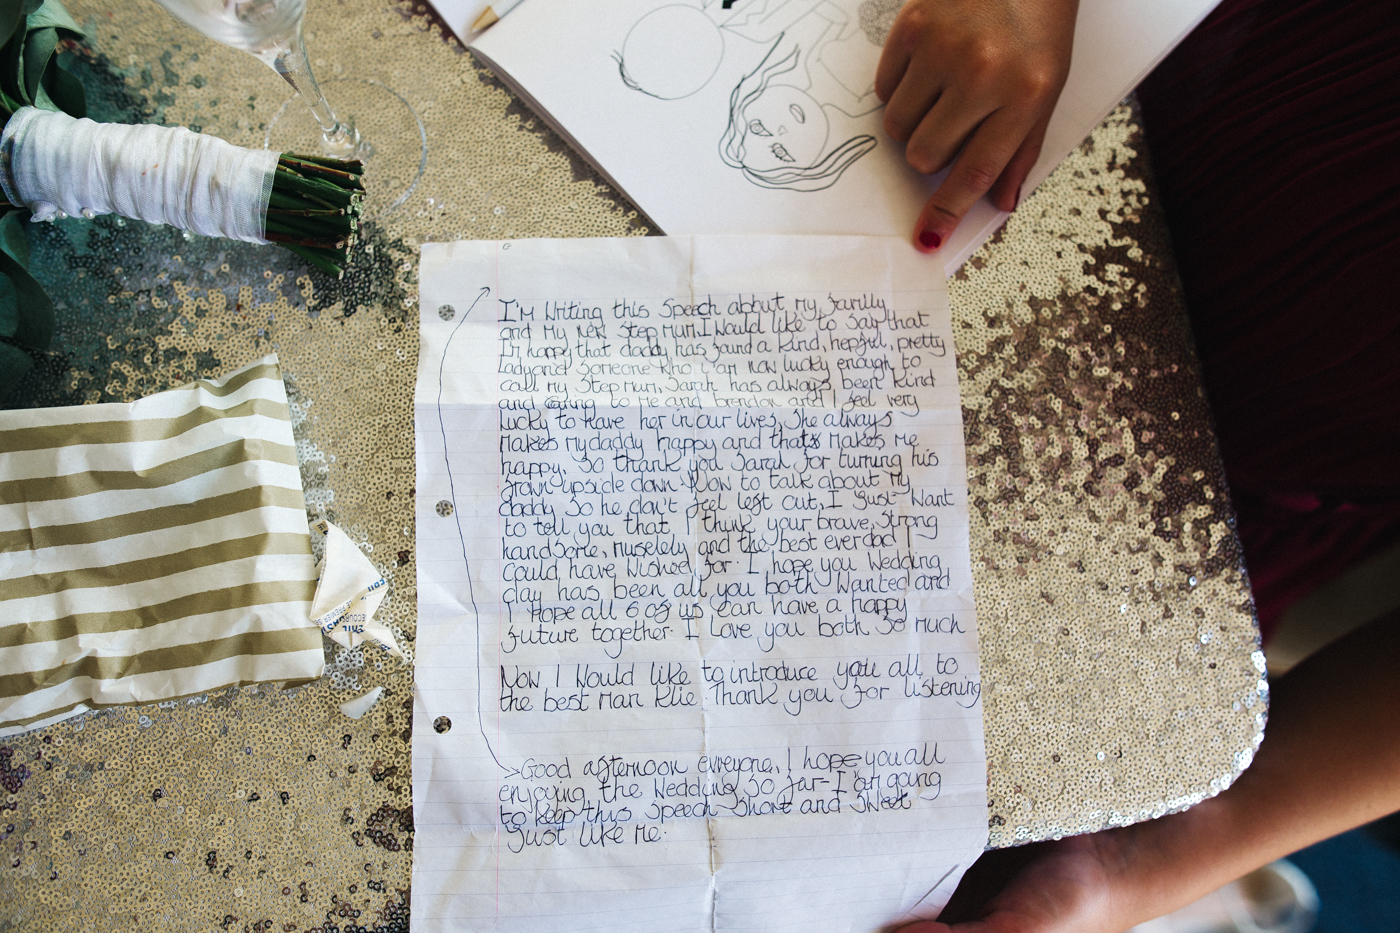 I'm Writing this Speech about my familly
and my new Step mum. I Would like to Say that
I'm happy that daddy has found a kind, hepful, pretty
Ladyand Someone Who i am now lucky enough to
call my Step mum, Sarah has always been kind
and caring to me and brendon and I feel very
lucky to have her in our lives, She always
makes my daddy happy and thats makes me
happy. So thank you Sarah for turning his
frown upside down. Now to talk about my
daddy So he don't feel left out, I just Want
to tell you that I think your brave, Strong
handsome, muselely and the best ever dad I
could have Wished for. I hope you Wedding
day has been all you both Wanted and
I Hope all 6 of us can have a happy
future together. I Love you both So much
Now I Would like to introduce you all to
the best man Klie. Thank you for listening
Good afternoon evreyone, I hope you all
enjoying the Wedding So far- I'am going
to keep this Speech Short and Sweet
Just like me.